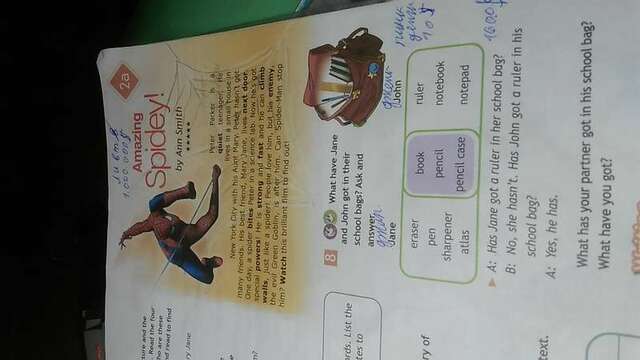 ture and the
. Read the four
ho are these
nd read to find
ry Jane
m?
ards. List the
tes to
ry of
text.
1.000.000$
2a
Amazing
Spidey!
by Ann Smith
★★★★★
Peter Parker is a
quiet teenager. He
lives in a small house in
New York City with his Aunt Mary. Peter hasn't got
many friends. His best friend, Mary Jane, lives next door.
One day, a spider bites Peter in a science lab. Now he's got
special powers! He is strong and fast and he can climb
walls, just like a spider! People love him, but his enemy,
the evil Green Goblin, is after him. Can Spider-Man stop
him? Watch this brilliant film to find out!
8 What have Jane
and John got in their
school bags? Ask and
answer.
Jane
John
eraser
pen
sharpener
atlas
book
pencil
pencil case
ruler
notebook
notepad
10$
1600$
A: Has Jane got a ruler in her school bag?
B: No, she hasn't. Has John got a ruler in his
school bag?
A: Yes, he has.
What has your partner got in his school bag?
What have you got?